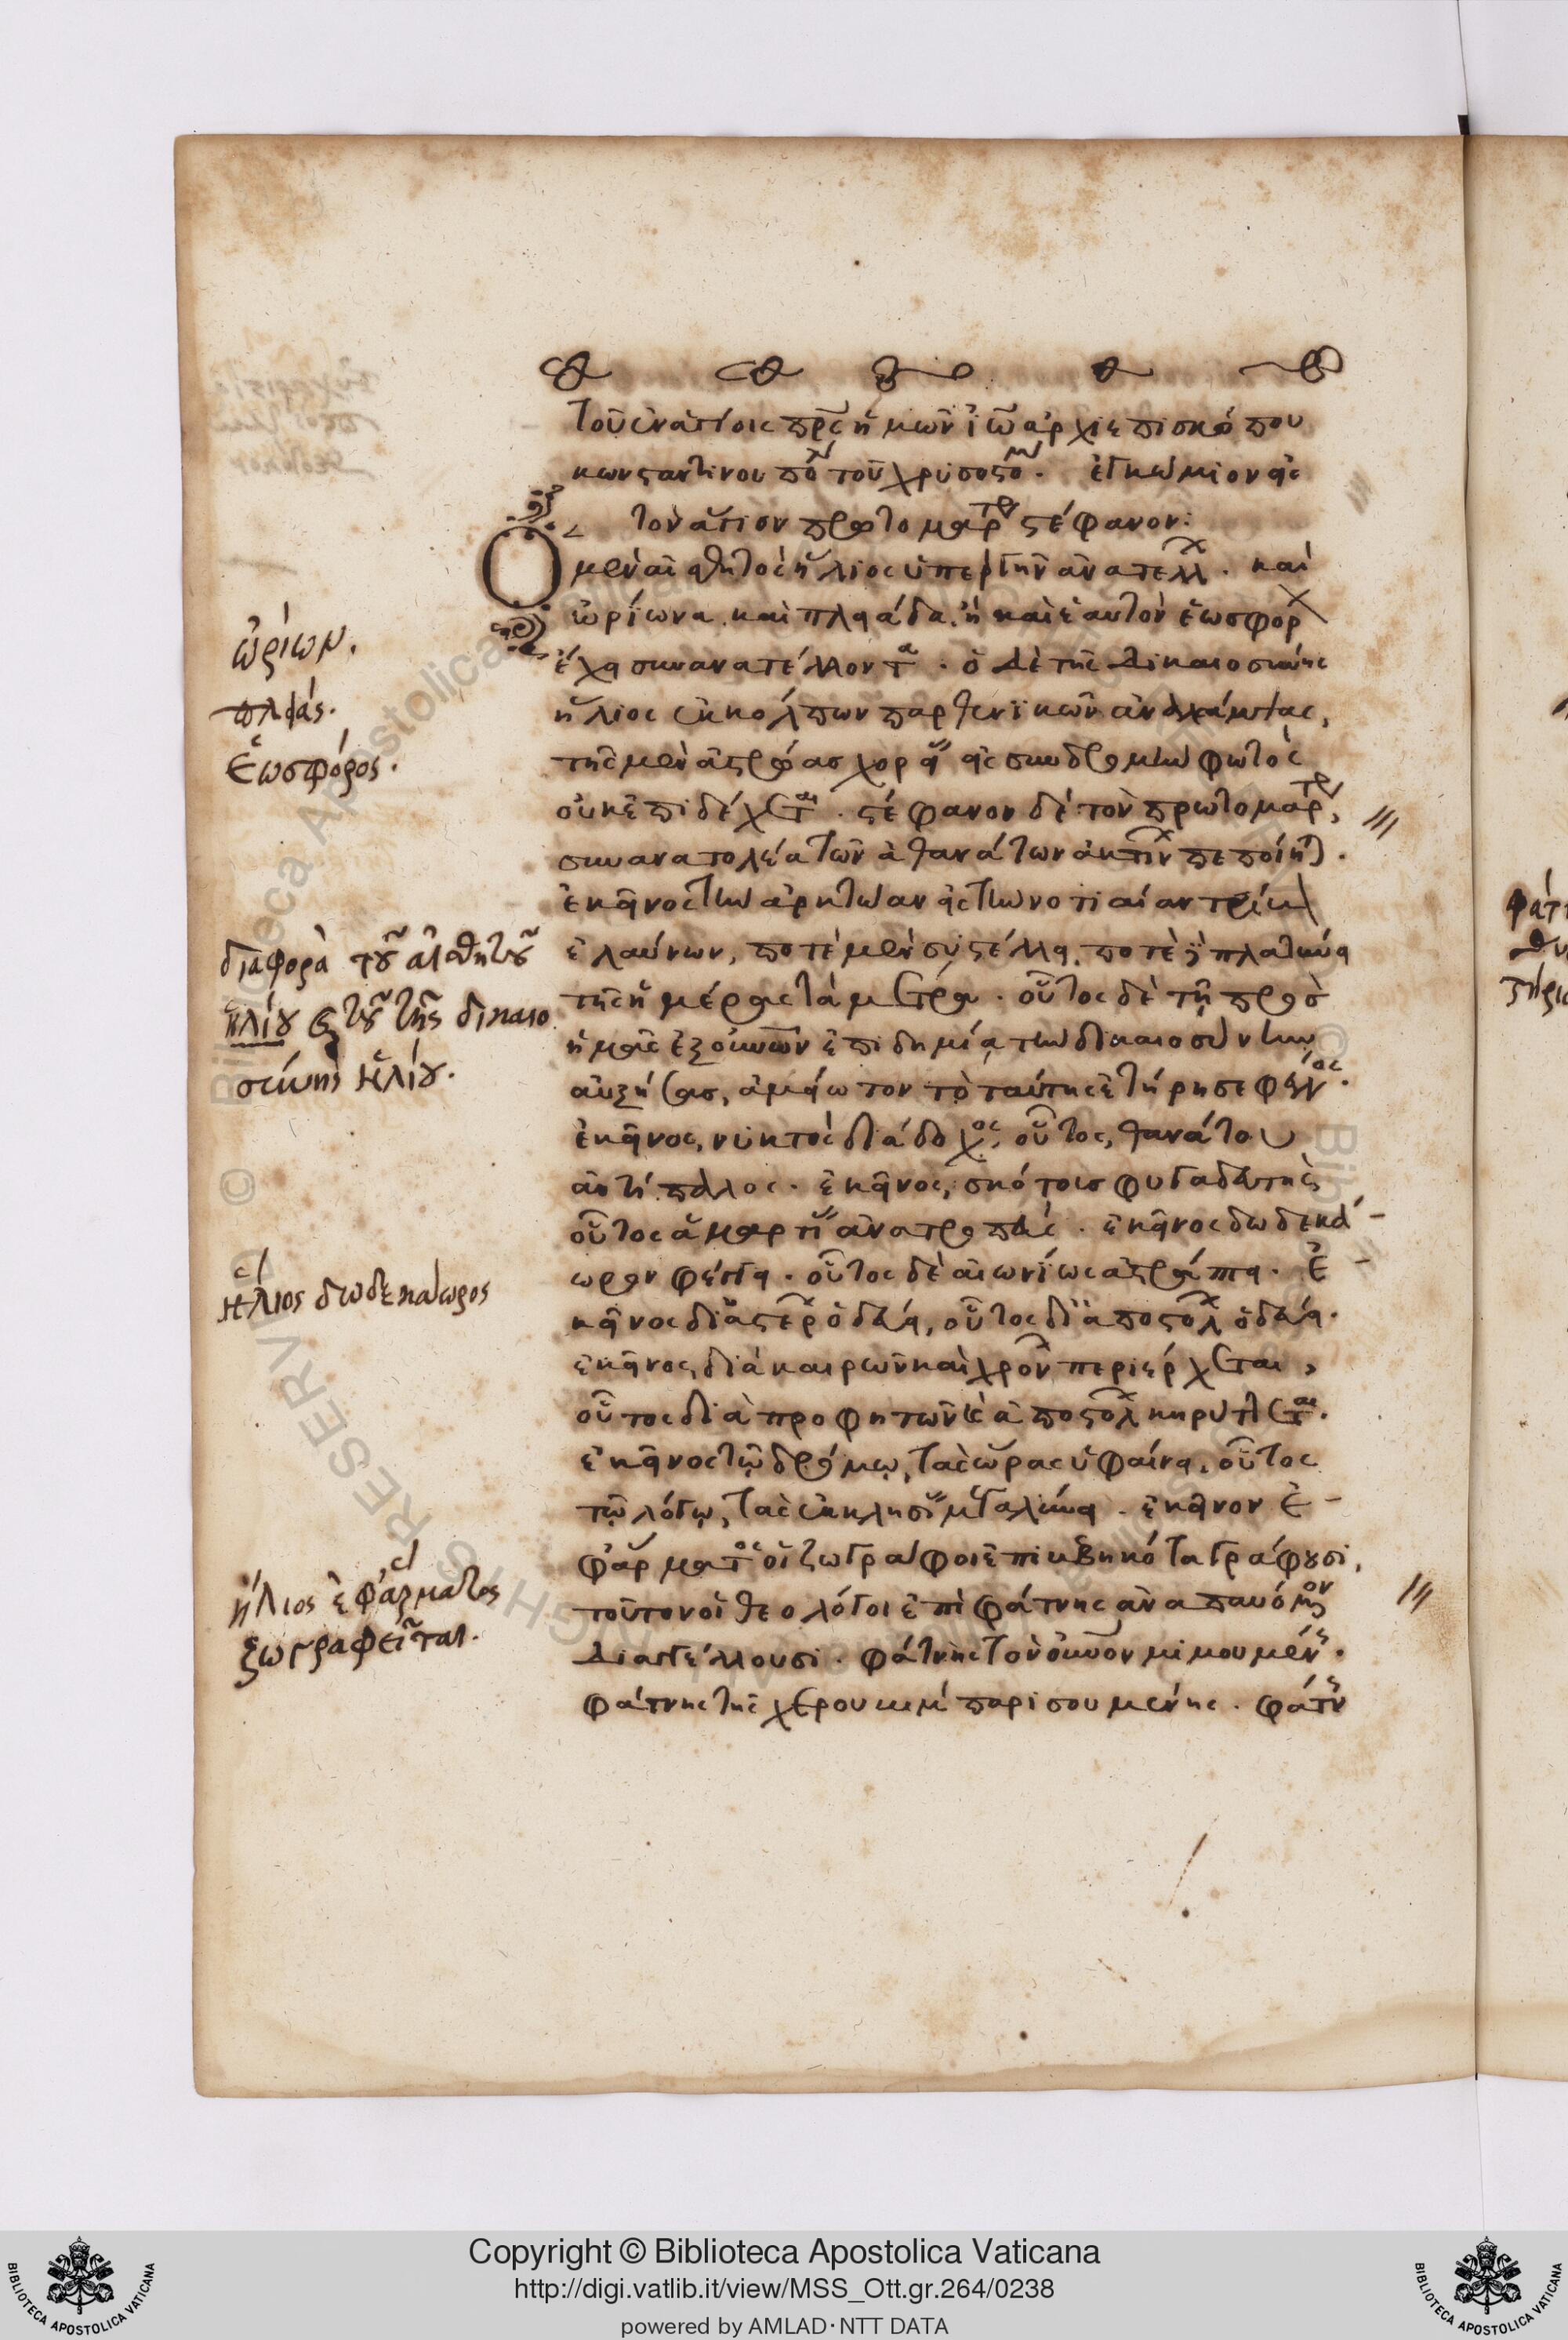 τοῦ ἐν ἁγίοις πρς ἡμῶν ἰω ἀρχιεπισκόπου
κωνσταντινουπό τοῦ χρυσοστο. ἐγκώμιον εἰς
τὸν ἅγιον πρωτομαρ στέφανον:
Ὁ μὲν αἰσθητὸς ἥλιος ὑπὲρ γῆν ἀνατελλ. καὶ
ὠρίωνα καὶ πλειάδα. ἢ καὶ ἑαυτὸν ἑωσφορ
ἔχει συνανατέλλοντα. ὁ δὲ τῆς δικαιοσύνης
ἥλιος ἐκ κόλπων παρθενικῶν ἀναλάμψας,
τῆς μὲν ἀστρώας χορεί εἰς συνδρομὴν φωτὸς
οὐκ ἐπιδέχεται. στέφανον δὲ τὸν πρωτομαρ,
συν ανατολέα τῶν ἀθανάτων ἀκτίν πεποίη.
ἐκεῖνος τὴν ἀρκτώαν εἰς τὴν νοτιαίαν
ἐλαύνων, ποτὲ μὲν συστέλλει. ποτὲ πλατύνει
τῆς ἡμέρας τὰ μέτρα. οὗτος δὲ τῇ πρὸς
ἡμᾶς ἐξ οὐνῶν ἐπιδημίᾳ τὴν δικαιοσύνην
αὐξήσας, ἀμείωτον τὸ ταύτης ἐτήρησε φέγγος.
ἐκεῖνος, νυκτὸς διάδοχος, οὗτος, θανάτου
ἀντίπαλος. ἐκεῖνος, σκότους φυγαδευτὴς
οὗτος ἁμαρτί ἀνατροπεύς. ἐκεῖνος δωδεκά-
ωρον φέγγει. οὗτος δὲ αἰωνίως ἀστράπτει. ἐ-
κεῖνος δι' ἀστέρ ὁδεύει, οὗτος δι' ἀποστολ ὁδεύει.
ἐκεῖνος διὰ καιρῶν καὶ χρόν περιέρχεται,
οὗτος διὰ προφητῶν κ ἀποστολ κηρύττεται.
ἐκεῖνος τῷ δρόμῳ, τὰς ὥρας ὑφαίνει. οὗτος
τῷ λόγῳ, τὰς ἐκκλησί μεγαλύνει. ἐκεῖνον ἐ-
φ' ἅρματος οἱ ζωγράφοι ἐπιβεβηκότα γράφουσι,
τοῦτον οἱ θεολόγοι ἐπὶ φάτνης ἀναπαυόμενον
διαγγέλλουσι. φάτνης τὸν οὐνον μιμουμέν.
φάτνης τῆς χερουβιμ παρισουμένης. φάτν
ὠρίων.
πλειάς.
ἑωσφόρος.
διαφορὰ τοῦ αἰσθητοῦ
ἡλίου κ τοῦ τῆς δικαιο
σύνης ἡλίου.
ἥλιος δωδεκάωρος
ἥλιος ἐφ' ἅρματος
ζωγραφεῖται.
Copyright © Biblioteca Apostolica Vaticana
http://digi.vatlib.it/view/MSS_Ott.gr.264/0238
powered by AMLAD·NTT DATA
BIBLIOTECA APOSTOLICA VATICANA
BIBLIOTECA APOSTOLICA VATICANA